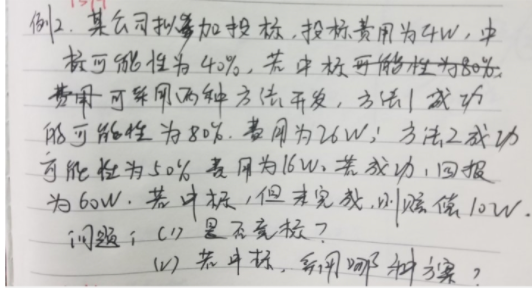 例2. 某公司拟参加投标，投标费用为4W，中
标可能性为40%，若中标可能性为80%.
费用可采用两种方法开发，方法1成功
的可能性为80%.费用为26W；方法2成功
可能性为50%费用为16W.若成功，回报
为60W.若中标，但未完成，则赔偿10W.
问题：(1) 是否竞标？
(2) 若中标，采用哪种方案？